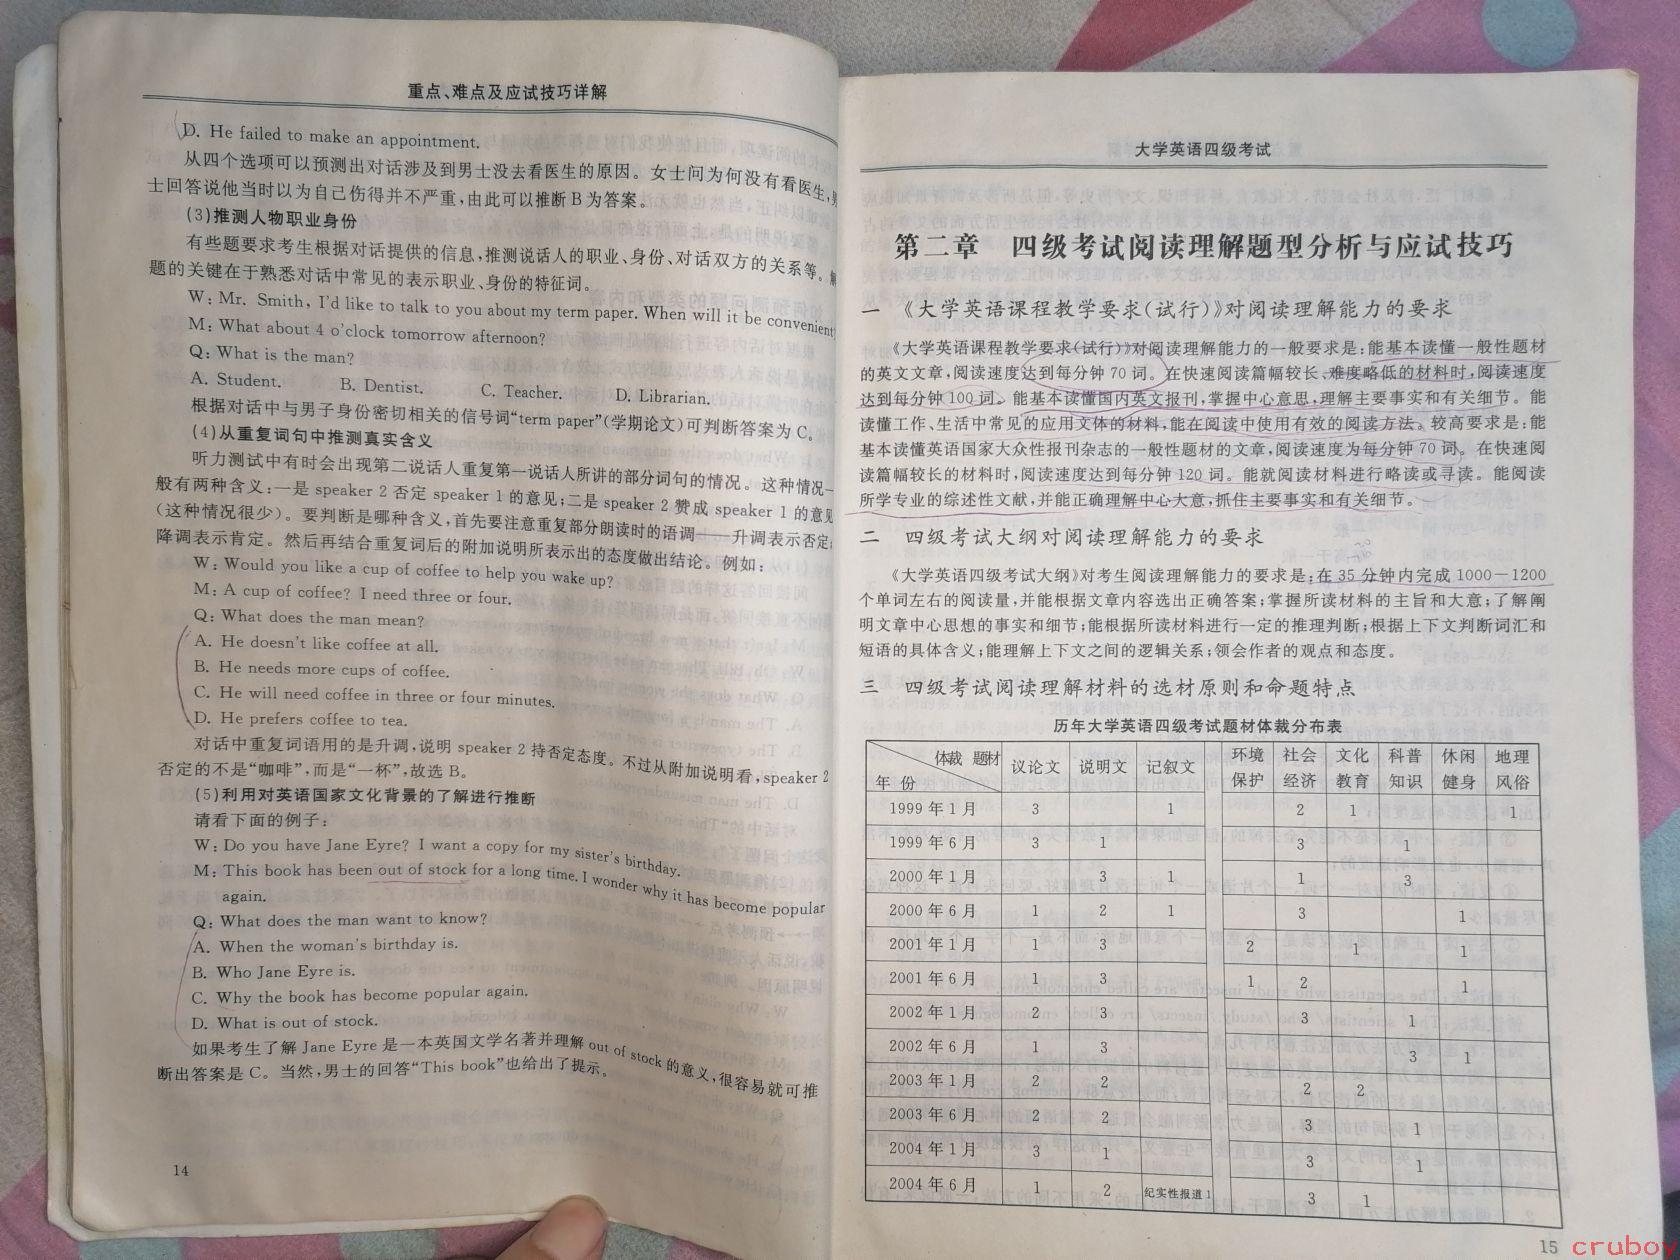 重点、难点及应试技巧详解
D. He failed to make an appointment.
从四个选项可以预测出对话涉及到男士没去看医生的原因。女士问为何没有看医生,男
士回答说他当时以为自己伤得并不严重,由此可以推断B为答案。
(3)推测人物职业身份
有些题要求考生根据对话提供的信息,推测说话人的职业、身份、对话双方的关系等。解
题的关键在于熟悉对话中常见的表示职业、身份的特征词。
W: Mr. Smith, I'd like to talk to you about my term paper. When will it be convenient
M: What about 4 o'clock tomorrow afternoon?
Q: What is the man?
A. Student. B. Dentist. C. Teacher. D. Librarian.
根据对话中与男子身份密切相关的信号词“term paper”(学期论文)可判断答案为C。
(4)从重复词句中推测真实含义
听力测试中有时会出现第二说话人重复第一说话人所讲的部分词句的情况。这种情况一
般有两种含义:一是 speaker 2 否定 speaker 1 的意见;二是 speaker 2 赞成 speaker 1 的意见
(这种情况很少)。要判断是哪种含义,首先要注意重复部分朗读时的语调——升调表示否定;
降调表示肯定。然后再结合重复词后的附加说明所表示出的态度做出结论。例如:
W: Would you like a cup of coffee to help you wake up?
M: A cup of coffee? I need three or four.
Q: What does the man mean?
A. He doesn't like coffee at all.
B. He needs more cups of coffee.
C. He will need coffee in three or four minutes.
D. He prefers coffee to tea.
对话中重复词语用的是升调,说明 speaker 2 持否定态度。不过从附加说明看,speaker 2
否定的不是“咖啡”,而是“一杯”,故选 B。
(5)利用对英语国家文化背景的了解进行推断
请看下面的例子:
W: Do you have Jane Eyre? I want a copy for my sister's birthday.
M: This book has been out of stock for a long time. I wonder why it has become popular
again.
Q: What does the man want to know?
A. When the woman's birthday is.
B. Who Jane Eyre is.
C. Why the book has become popular again.
D. What is out of stock.
如果考生了解 Jane Eyre 是一本英国文学名著并理解 out of stock 的意义,很容易就可推
断出答案是 C。当然,男士的回答“This book”也给出了提示。
14
大学英语四级考试
第二章 四级考试阅读理解题型分析与应试技巧
一 《大学英语课程教学要求(试行)》对阅读理解能力的要求
《大学英语课程教学要求(试行)》对阅读理解能力的一般要求是:能基本读懂一般性题材
的英文文章,阅读速度达到每分钟 70 词。在快速阅读篇幅较长、难度略低的材料时,阅读速度
达到每分钟 100 词。能基本读懂国内英文报刊,掌握中心意思,理解主要事实和有关细节。能
读懂工作、生活中常见的应用文体的材料,能在阅读中使用有效的阅读方法。较高要求是:能
基本读懂英语国家大众性报刊杂志的一般性题材的文章,阅读速度为每分钟 70 词。在快速阅
读篇幅较长的材料时,阅读速度达到每分钟 120 词。能就阅读材料进行略读或寻读。能阅读
所学专业的综述性文献,并能正确理解中心大意,抓住主要事实和有关细节。
二 四级考试大纲对阅读理解能力的要求
《大学英语四级考试大纲》对考生阅读理解能力的要求是:在 35 分钟内完成 1000-1200
个单词左右的阅读量,并能根据文章内容选出正确答案;掌握所读材料的主旨和大意;了解阐
明文章中心思想的事实和细节;能根据所读材料进行一定的推理判断;根据上下文判断词汇和
短语的具体含义;能理解上下文之间的逻辑关系;领会作者的观点和态度。
三 四级考试阅读理解材料的选材原则和命题特点
历年大学英语四级考试题材体裁分布表
年份 体裁 题材 议论文 说明文 记叙文 环境保护 社会经济 文化教育 科普知识 休闲健身 地理风俗
1999 年 1 月 3 1 2 1 1
1999 年 6 月 3 1 3 1
2000 年 1 月 3 1 1 3
2000 年 6 月 1 2 1 3 1
2001 年 1 月 1 3 2 1 1
2001 年 6 月 1 3 1 2 1
2002 年 1 月 2 3 3 1
2002 年 6 月 1 3 3 1
2003 年 1 月 2 2 2 2
2003 年 6 月 2 2 3 1
2004 年 1 月 3 1 3 1
2004 年 6 月 1 2 纪实性报道 1 3 1
15
cruboy